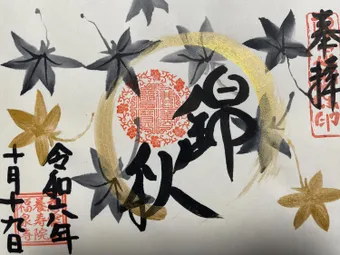 奉拝
錦
秋
令和六年
十月十九日
養寿院